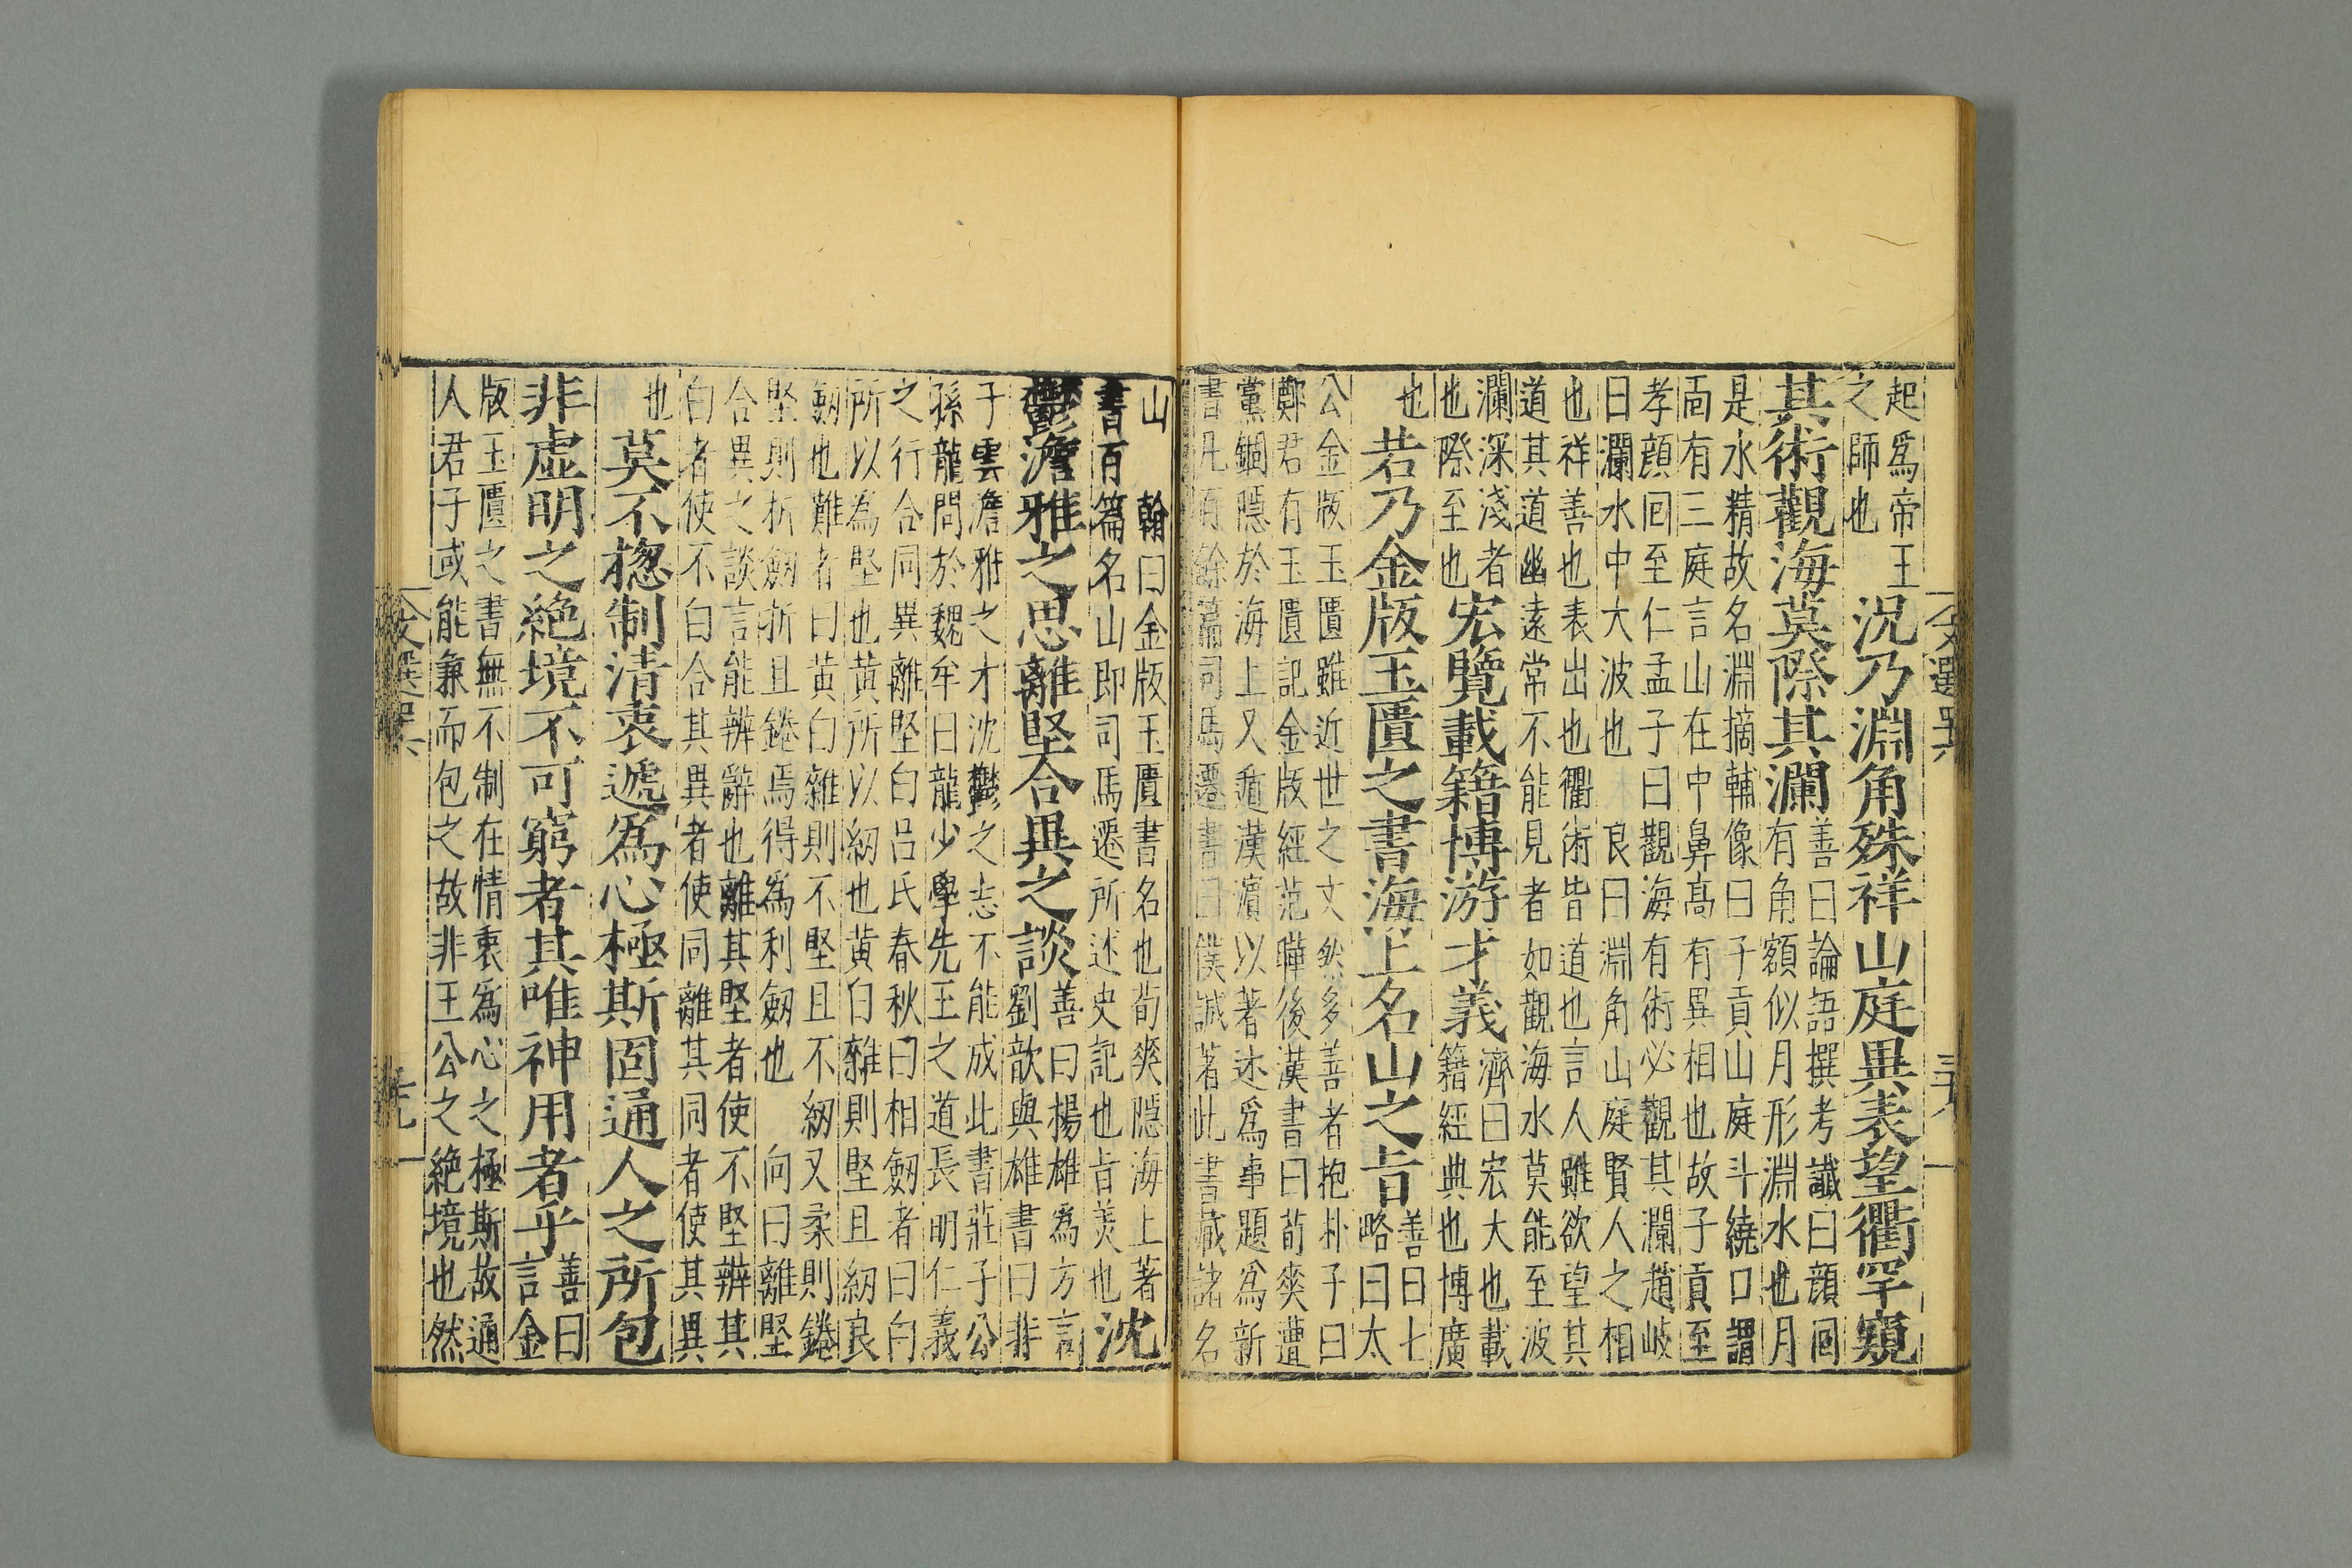 起爲帝王
之師也
況乃淵角殊祥山庭異表望衢罕窺
其術觀海莫際其瀾
善曰論語撰考讖曰顔回
有角額似月形淵水也月
是水精故名淵摘輔像曰子貢山庭斗繞口謂
面有三庭言山在中鼻髙有異相也故子貢至
孝顔回至仁孟子曰觀海有術必觀其瀾趙岐
曰瀾水中大波也 良曰淵角山庭賢人之相
也祥善也表出也衢術皆道也言人雖欲望其
道其道幽遠常不能見者如觀海水莫能至波
瀾深淺者
也際至也
宏覽載籍博游才義
濟曰宏大也載
籍經典也博廣
也
若乃金版玉匱之書海上名山之㫖
善曰七
略曰太
公金版玉匱雖近世之文然多善者抱朴子曰
鄭君有玉匱記金版經范曄後漢書曰荀爽遭
黨錮隱於海上又遁漢濱以著述爲事題爲新
書凡百餘篇司馬遷書曰僕誠著此書藏諸名
山 翰曰金版玉匱書名也荀爽隱海上著
書百篇名山即司馬遷所述史記也㫖美也
沈
鬱澹雅之思離堅合異之談
善曰揚雄爲方言
劉歆與雄書曰非
子雲澹雅之才沈鬱之志不能成此書莊子公
孫龍問於魏牟曰龍少學先王之道長明仁義
之行合同異離堅白吕氏春秋曰相劒者曰白
所以為堅也黄所以紉也黄白雜則堅且紉良
劒也難者曰黄白雜則不堅且不紉又柔則錈
堅則折劒折且錈焉得爲利劒也 向曰離堅
合異之談言能辨辭也離其堅者使不堅辨其
白者使不白合其異者使同離其同者使其異
也
莫不揔制清衷遞爲心極斯固通人之所包
非虚明之絶境不可窮者其唯神用者乎
善曰
言金
版玉匱之書無不制在情衷爲心之極斯故通
人君子或能兼而包之故非王公之絶境也然